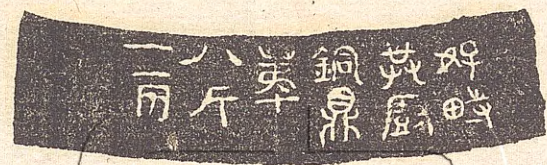 好畤
共廚
銅鼎
重
八斤
一兩